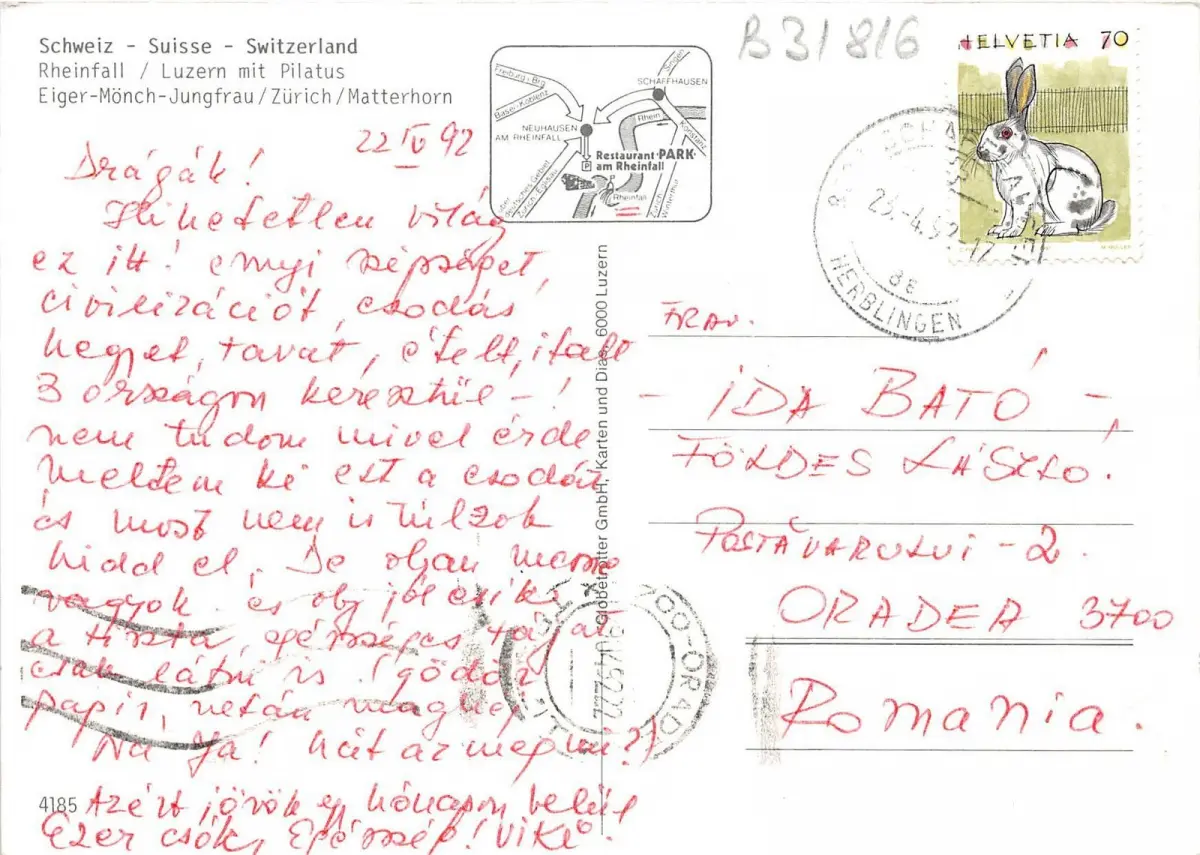 Schweiz - Suisse - Switzerland
Rheinfall / Luzern mit Pilatus
Eiger-Mönch-Jungfrau/Zürich/Matterhorn
B31816
HELVETIA 70
Freiburg i. Brg.
Basel-Koblenz
Singen
SCHAFFHAUSEN
NEUHAUSEN
AM RHEINFALL
Rhein
Konstanz
Restaurant PARK
am Rheinfall
P
Rheinfall
Zürich
Winterthur
23.-4.92-17
8e
HERBLINGEN
22 IV 92
Drágák!
Hihetetlen világ
ez itt! ennyi szépséget,
civilizációt, csodás
hegyet, tavat, ételt, italt
3 országon keresztül -!
nem tudom mivel érde
meltem ki ezt a csodát
és most nem is túlzok
hidd el. De olyan messze
vagyok és oly jól esik
a tiszta, egészséges tájat
csak látni is! gödör
papír, netán
Na Ja! hát az meg mi?!
Azért jövök egy hónapon belül
Ezer csók, Egészség! Viki.
4185
Globetrotter GmbH, Karten und Dias, 6000 Luzern
FRAU.
- IDA BATÓ -,
FÖLDES LÁSZLO.
POSTĂVARULUI - 2.
ORADEA 3700
Romania.